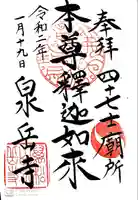 奉拝 四十七士廟所
本尊釋迦如来
令和二年
一月十九日
泉岳寺